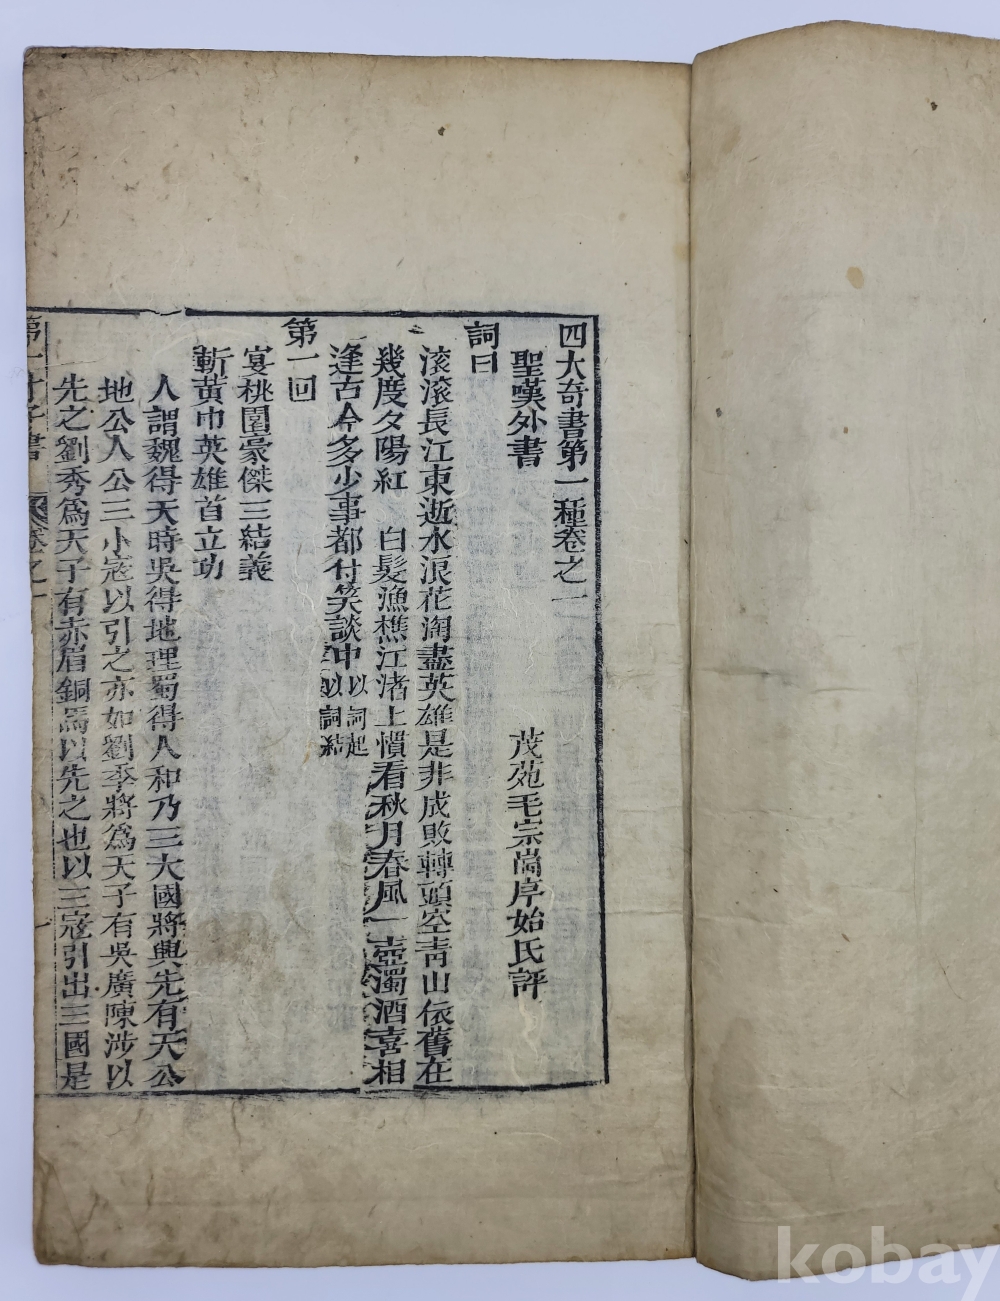 四大奇書第一種卷之一
聖嘆外書　茂苑毛宗崗序始氏評
詞曰
滾滾長江東逝水浪花淘盡英雄是非成敗轉頭空靑山依舊在
幾度夕陽紅　白髮漁樵江渚上慣看秋月春風一壺濁酒喜相
逢古今多少事都付笑談中以詞起以詞結
第一回
宴桃園豪傑三結義
斬黃巾英雄首立功
人謂魏得天時吳得地理蜀得人和乃三大國將興先有天公
地公人公三小寇以引之亦如劉季將爲天子有吳廣陳涉以
先之劉秀爲天子有赤眉銅馬以先之也以三寇引出三國是
第一才子書　卷之一　一
kobay